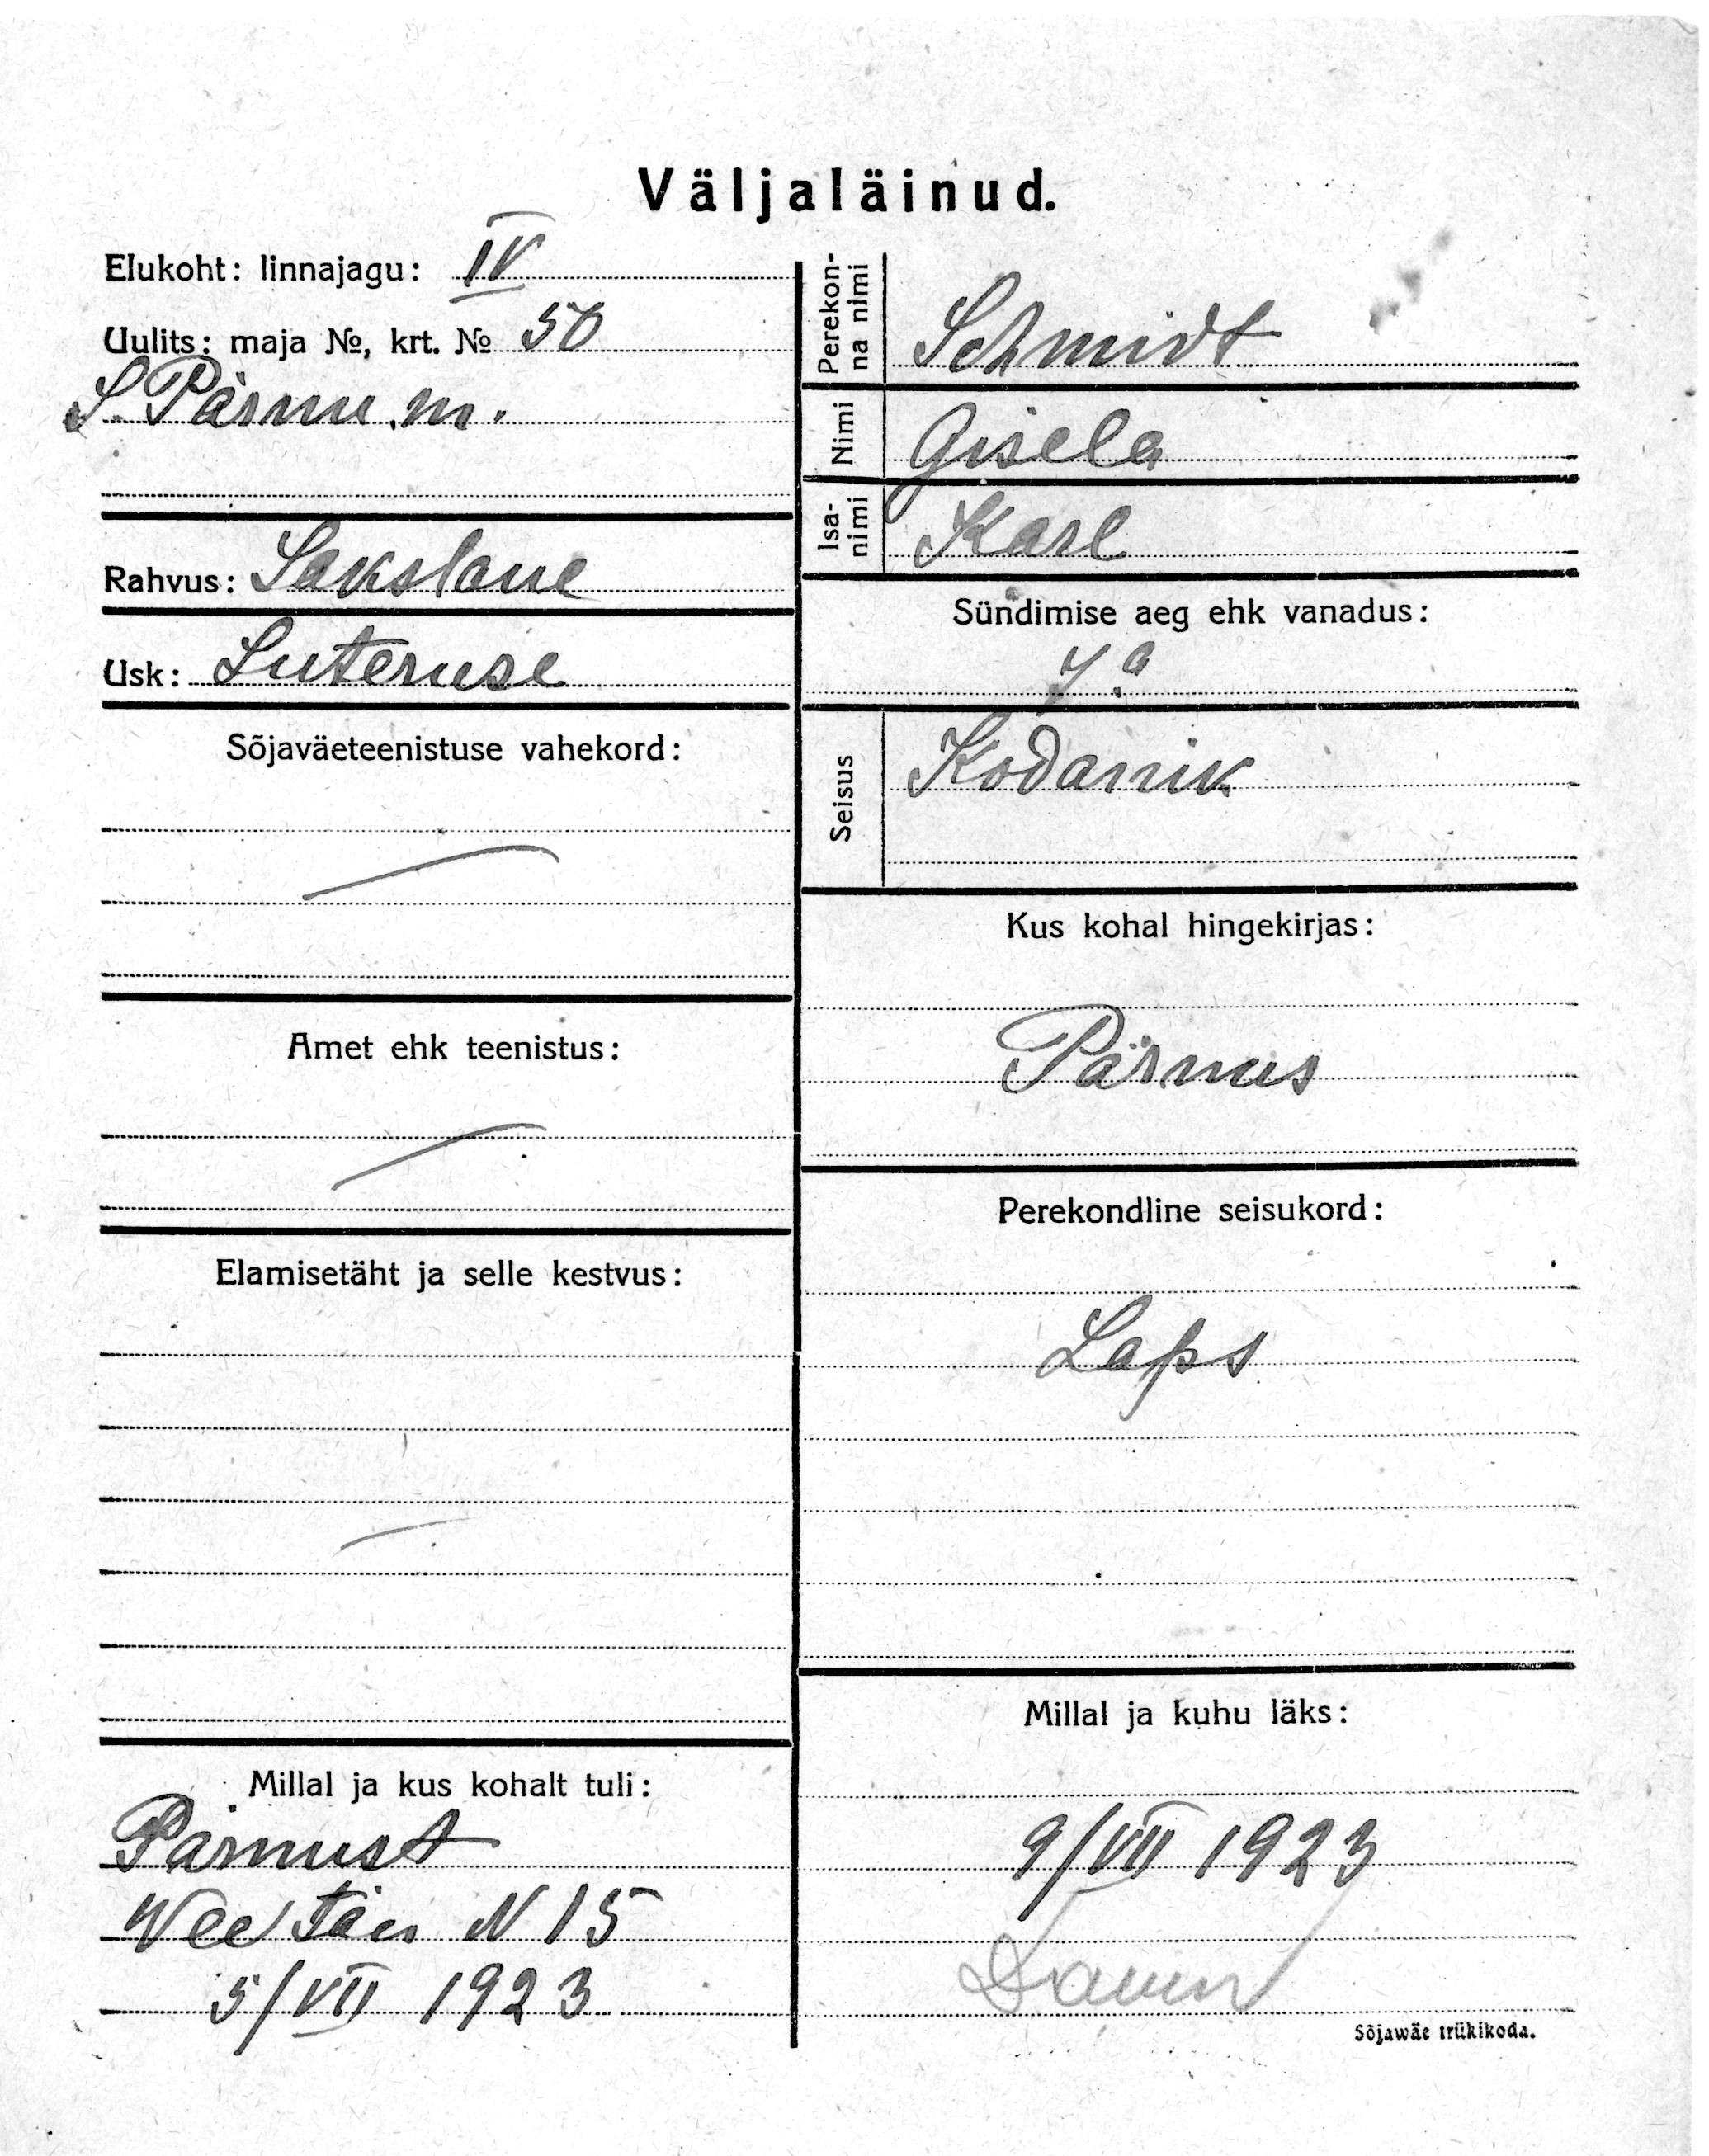 Väljaläinud.
Elukoht: linnajagu: IV
Uulits: maja №, krt. № 50
S. Pärnu m.
Rahvus: Sakslane
Usk: Luteruse
Sõjaväeteenistuse vahekord:
Amet ehk teenistus:
Elamisetäht ja selle kestvus:
Millal ja kus kohalt tuli:
Pärnust
Wee tän N 15
5/VII 1923
Perekon-
na nimi
Schmidt
Nimi
Gisela
Isa-
nimi
Karl
Sündimise aeg ehk vanadus:
7. a
Seisus
Kodanik
Kus kohal hingekirjas:
Pärnus
Perekondline seisukord:
Laps
Millal ja kuhu läks:
9/VII 1923
Sõjawäe trükikoda.